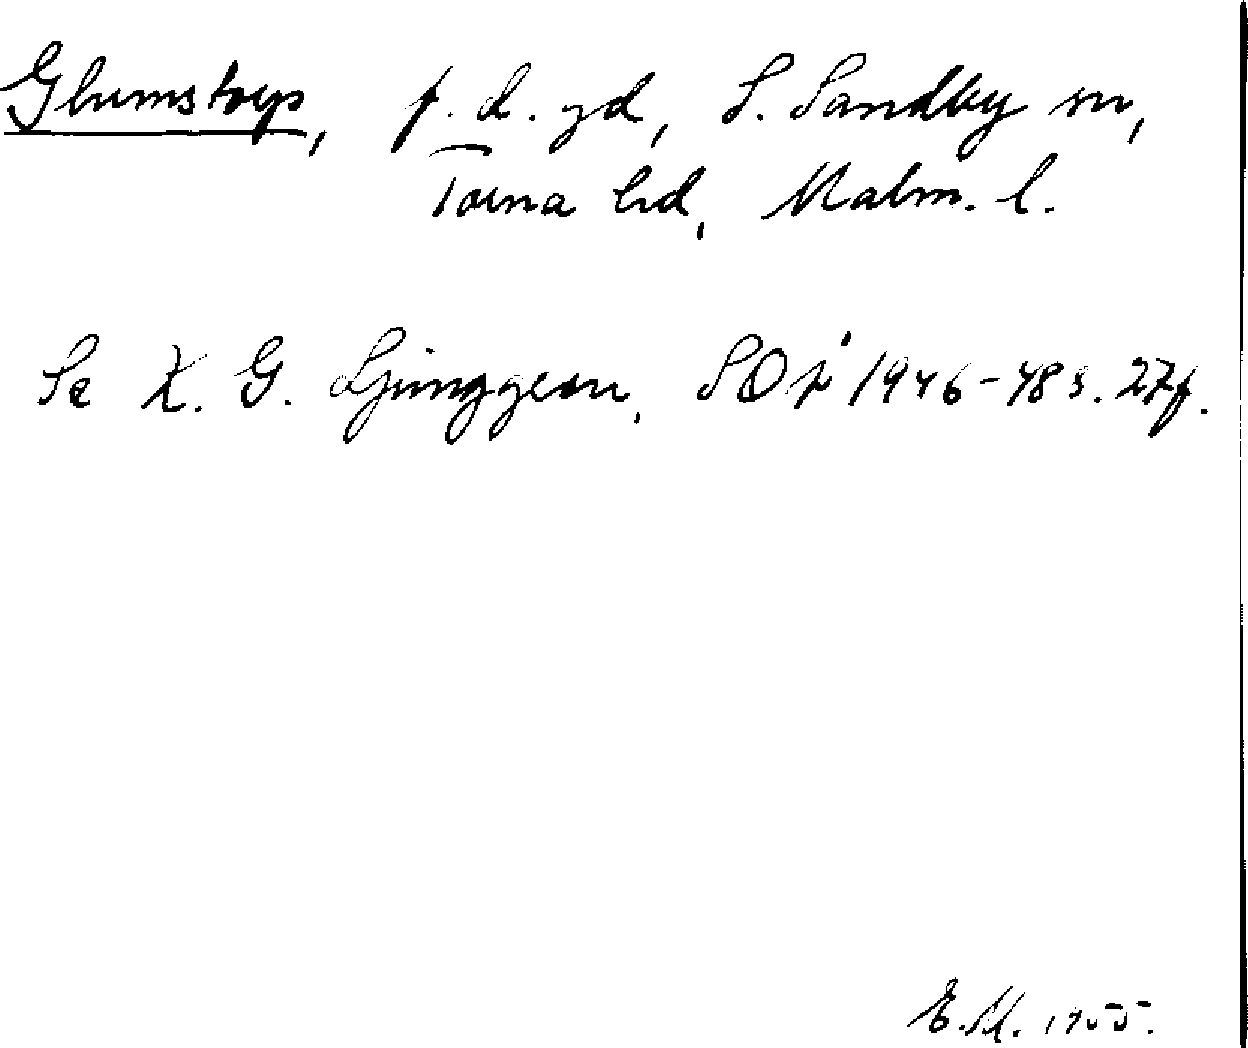 Glumstorp, f. d. gd, S. Sandby sn,
Torna hd, Malm. l.
Se K. G. Ljunggren, SOÅ 1946-48 s. 27f.
E.M. 1955.